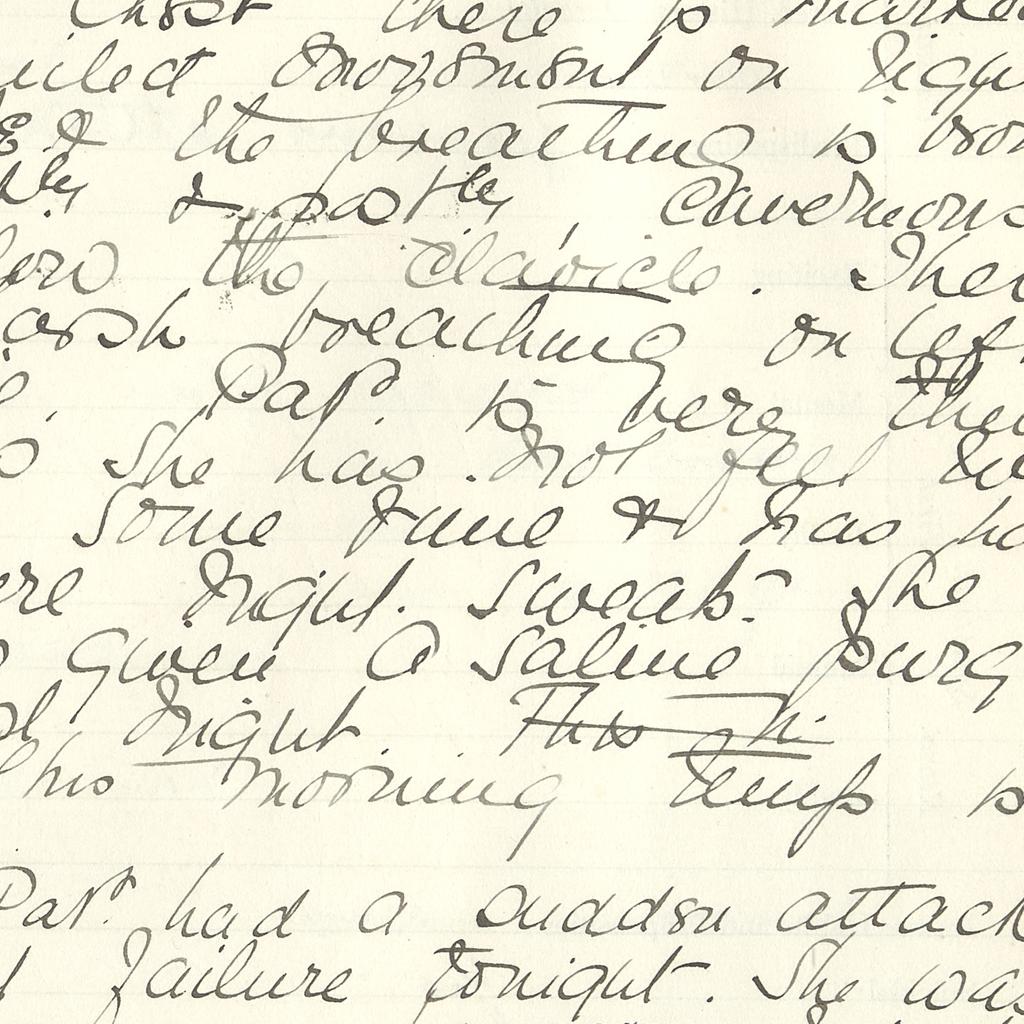 Chest there is marked
movement on right
side & the breathing is bron
& partly cavernous
the clavicle. Ther
arsh breathing on left
Pat. is very then
She has not felt we
Some time & has ha
ere night. sweats. She
given a saline purg
night. This mi
This morning temp is
Pat. had a sudden attack
failure tonight. She was